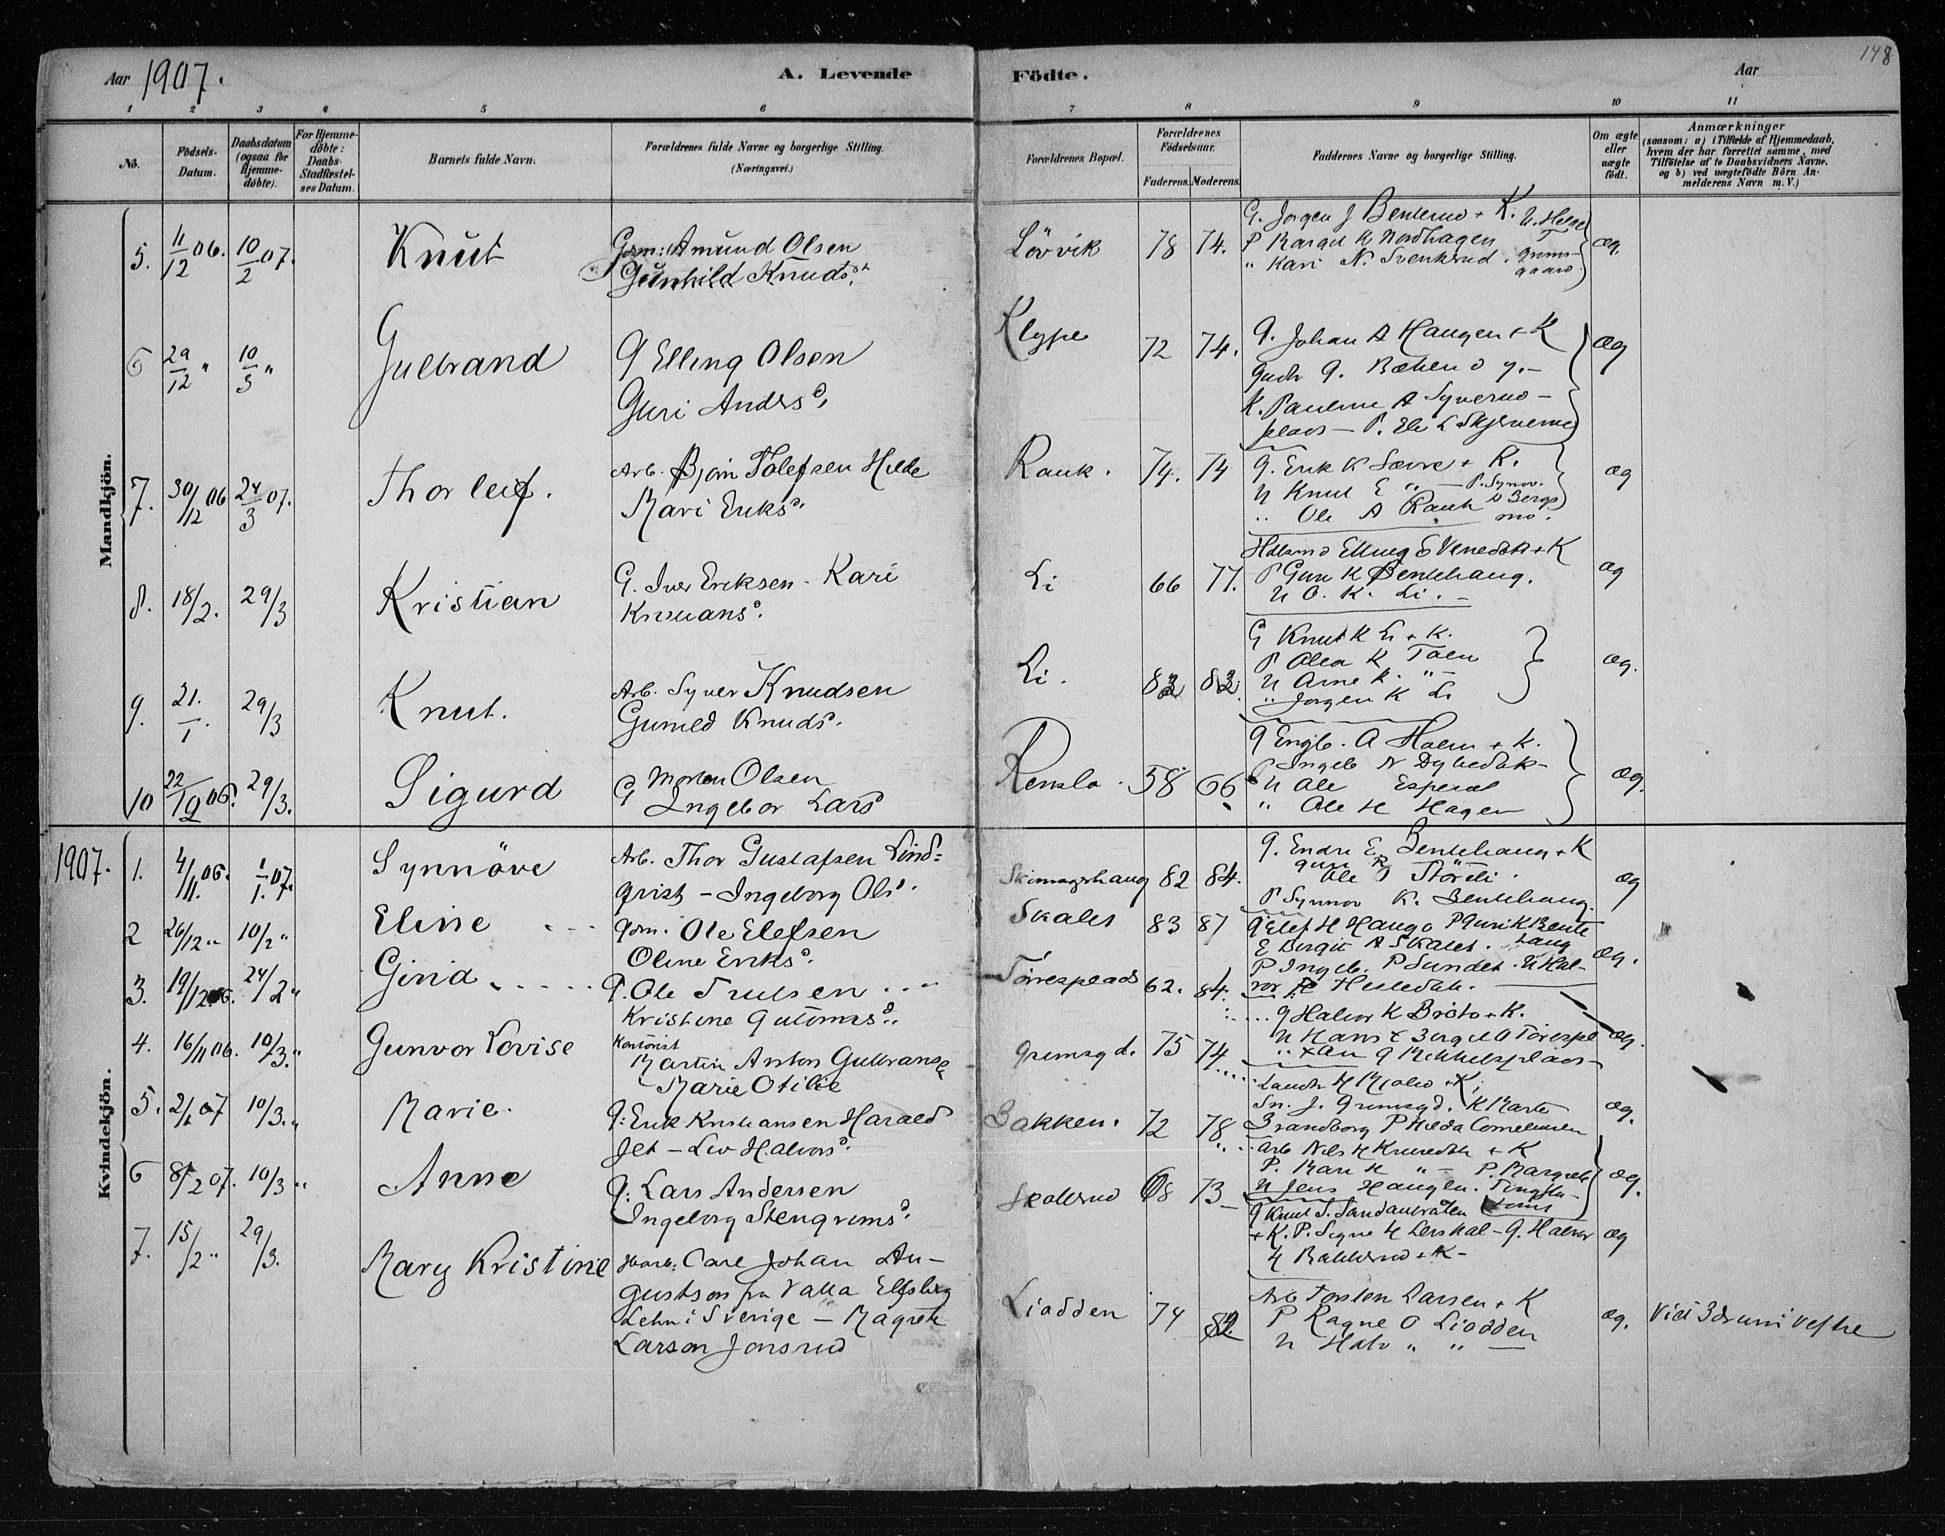 Aar 1907.
A. Levende
Födte.
Aar
148
1 2 3 4 5 6 7 8 9 10 11
No.
Födsels-Datum.
Daabsdatum (ogsaa for Hjemme-döbte).
For Hjemme-döbte: Daabs-Stadfæstel-ses Datum.
Barnets fulde Navn.
Forældrenes fulde Navne og borgerlige Stilling. (Næringsvei.)
Forældrenes Bopæl.
Forældrenes Födselsaar.
Faderens. Moderens.
Faddernes Navne og borgerlige Stilling.
Om ægte eller uægte födt.
Anmærkninger
(saasom: a) i Tilfælde af Hjemmedaab, hvem der har forrettet samme, med Tilföielse af to Daabsvidners Navne, og b) ved uægtefödte Börn An-melderens Navn m. V.)
Mandkjön.
5. 11/12 06. 10/2 07. Knut
Gsm: Amund Olsen
Gunhild Knudsd.
Lövvik 78 74.
G. Jörgen J Benterud + K. N. Helge
P Margit K Nordhagen
" Kari N. Svenkerud. Grims-
gaard
æg.
6 29/12 " 10/3 " Gulbrand
G Elling Olsen
Guri Andersd.
Klype 72 74.
G. Johan A Haugen + K
K. Pauline A Syverud-
plads - P.
æg
7. 30/12 06 24/3 07. Thorleif.
Arb. Björn Tolefsen Hilde
Mari Eriksd.
Rauk. 74. 74
G. Erik K Særre + K.
N Knut E " - P. Synnv.
" Ole A Rauk
æg
8. 18/2. 29/3 Kristian
G. Iver Eriksen - Kari
Kristiansd.
Li 66 77.
Elling E Venedok + K
P Guri K Bentehaug.
N O. K. Li. -
æg
9. 21./1. 29/3 Knut.
Arb. Syver Knudsen
Gunild Knuds.
Li. 83 83.
G Knut K Li + K.
P Olea K Toen
N Arne K. "-
" Jörgen K Li
æg.
10 22/12 06. 29/3. Sigurd
G Morten Olsen
Ingebor Lars
Remslo. 58 66
G Engb. A Holm + K.
P Ingeb N Dybedok-
N Ole Esperal
" Ole H Hagen
æg.
Kvindekjön.
1907. 1. 4/11 06. 1/1. 07. Synnöve
Arb. Thor Gustafsen Lind=
qvist - Ingeborg Olsd.
Skinnarhaug 82 84.
G. Endre E Bentehaug + K
Ole T Störeli.
P Synnöv K. Bentehaug.
æg
2 26/12 " 10/2 " Eline
Gsm. Ole Elefsen
Oline Eriksd.
Skalet 83 87
G Elef H Haugo P Guri K Bente
haug
E Birgit A Skalet.
æg.
3. 19/12 06. 24/2 " Gina
G. Ole Trulsen
Kristine Guttormsd.
Törresplads 62. 84.
P Ingeb. P Sundet. N Hal-
vor H Hesledok.
4. 16/11 06. 10/3. " Gunvor Lovise
Kontorist
Martin Anton Gulbrans
Marie Otilie
Grimsgd. 75 74
G Halvor K Bröto + K.
N Hans
G Mikkelsplads-
æg.
5. 2/1 07 10/3. " Marie.
G: Erik Kristiansen Harald
Jet - Liv Halvorsd.
Bakken. 72 78
Sn. J. Grimsgd. K Marte
Brandborg P Hilda Cornelinsen
æg.
6 8/2 07. 10/3 " Anne
G: Lars Andersen
Ingeborg Stengrimsd.
Skollerud 68 73
Arb Nils H Knivedok + K
P. Mari H " - P. Margrete
N Jens Haugen.
æg.
7. 15/2 " 29/3. Mary Kristine
Carl Johan Au-
gustson fra Valla Elfsborg
Lehn i Sverige - Magrete
Larson Jonsrud
Liodden 74 82
G Knut S. Sandaubråten
+ K. P. Signe H Lerskal - G. Halvor
H Bakkerud + K -
æg
Arb Torsten Larsen + K
P Ragne O Liodden
N Halv " "
æg.